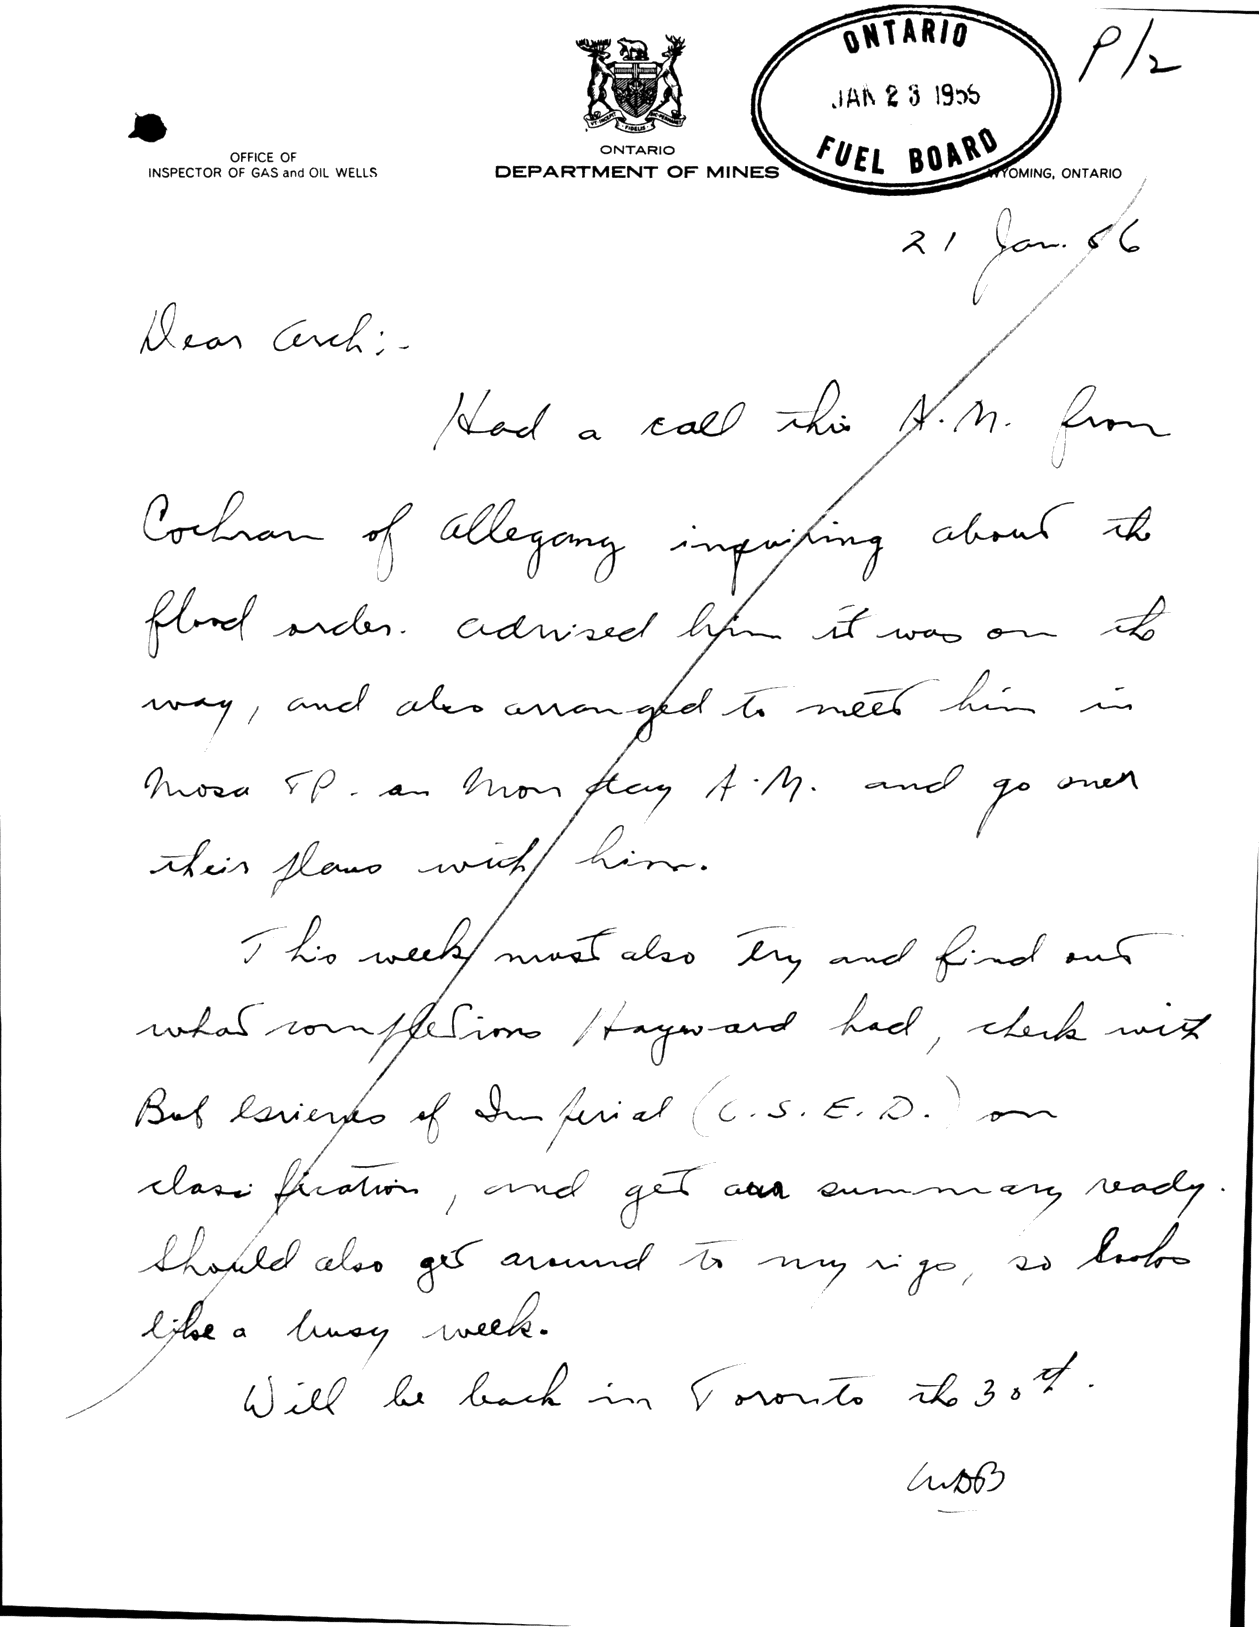 ONTARIO
JAN 23 1956
FUEL BOARD
P/2
OFFICE OF
INSPECTOR OF GAS and OIL WELLS
ONTARIO
DEPARTMENT OF MINES
WYOMING, ONTARIO
21 Jan. 56
Dear Arch:-
Had a call this A.M. from
Cochran of Allegany inquiring about the
flood order. Advised him it was on the
way, and also arranged to meet him in
Mosa TP. on Monday A.M. and go over
their plans with him.
This week must also try and find out
what completions Hayward had, check with
Bob of Imperial (C.S.E.D.) on
classification, and get our summary ready.
Should also get around to my rigs, so looks
like a busy week.
Will be back in Toronto the 30th.
WDB